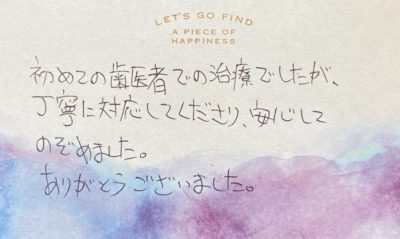 LET'S GO FIND
A PIECE OF
HAPPINESS
初めての歯医者での治療でしたが、
丁寧に対応してくださり、安心して
のぞめました。
ありがとうございました。